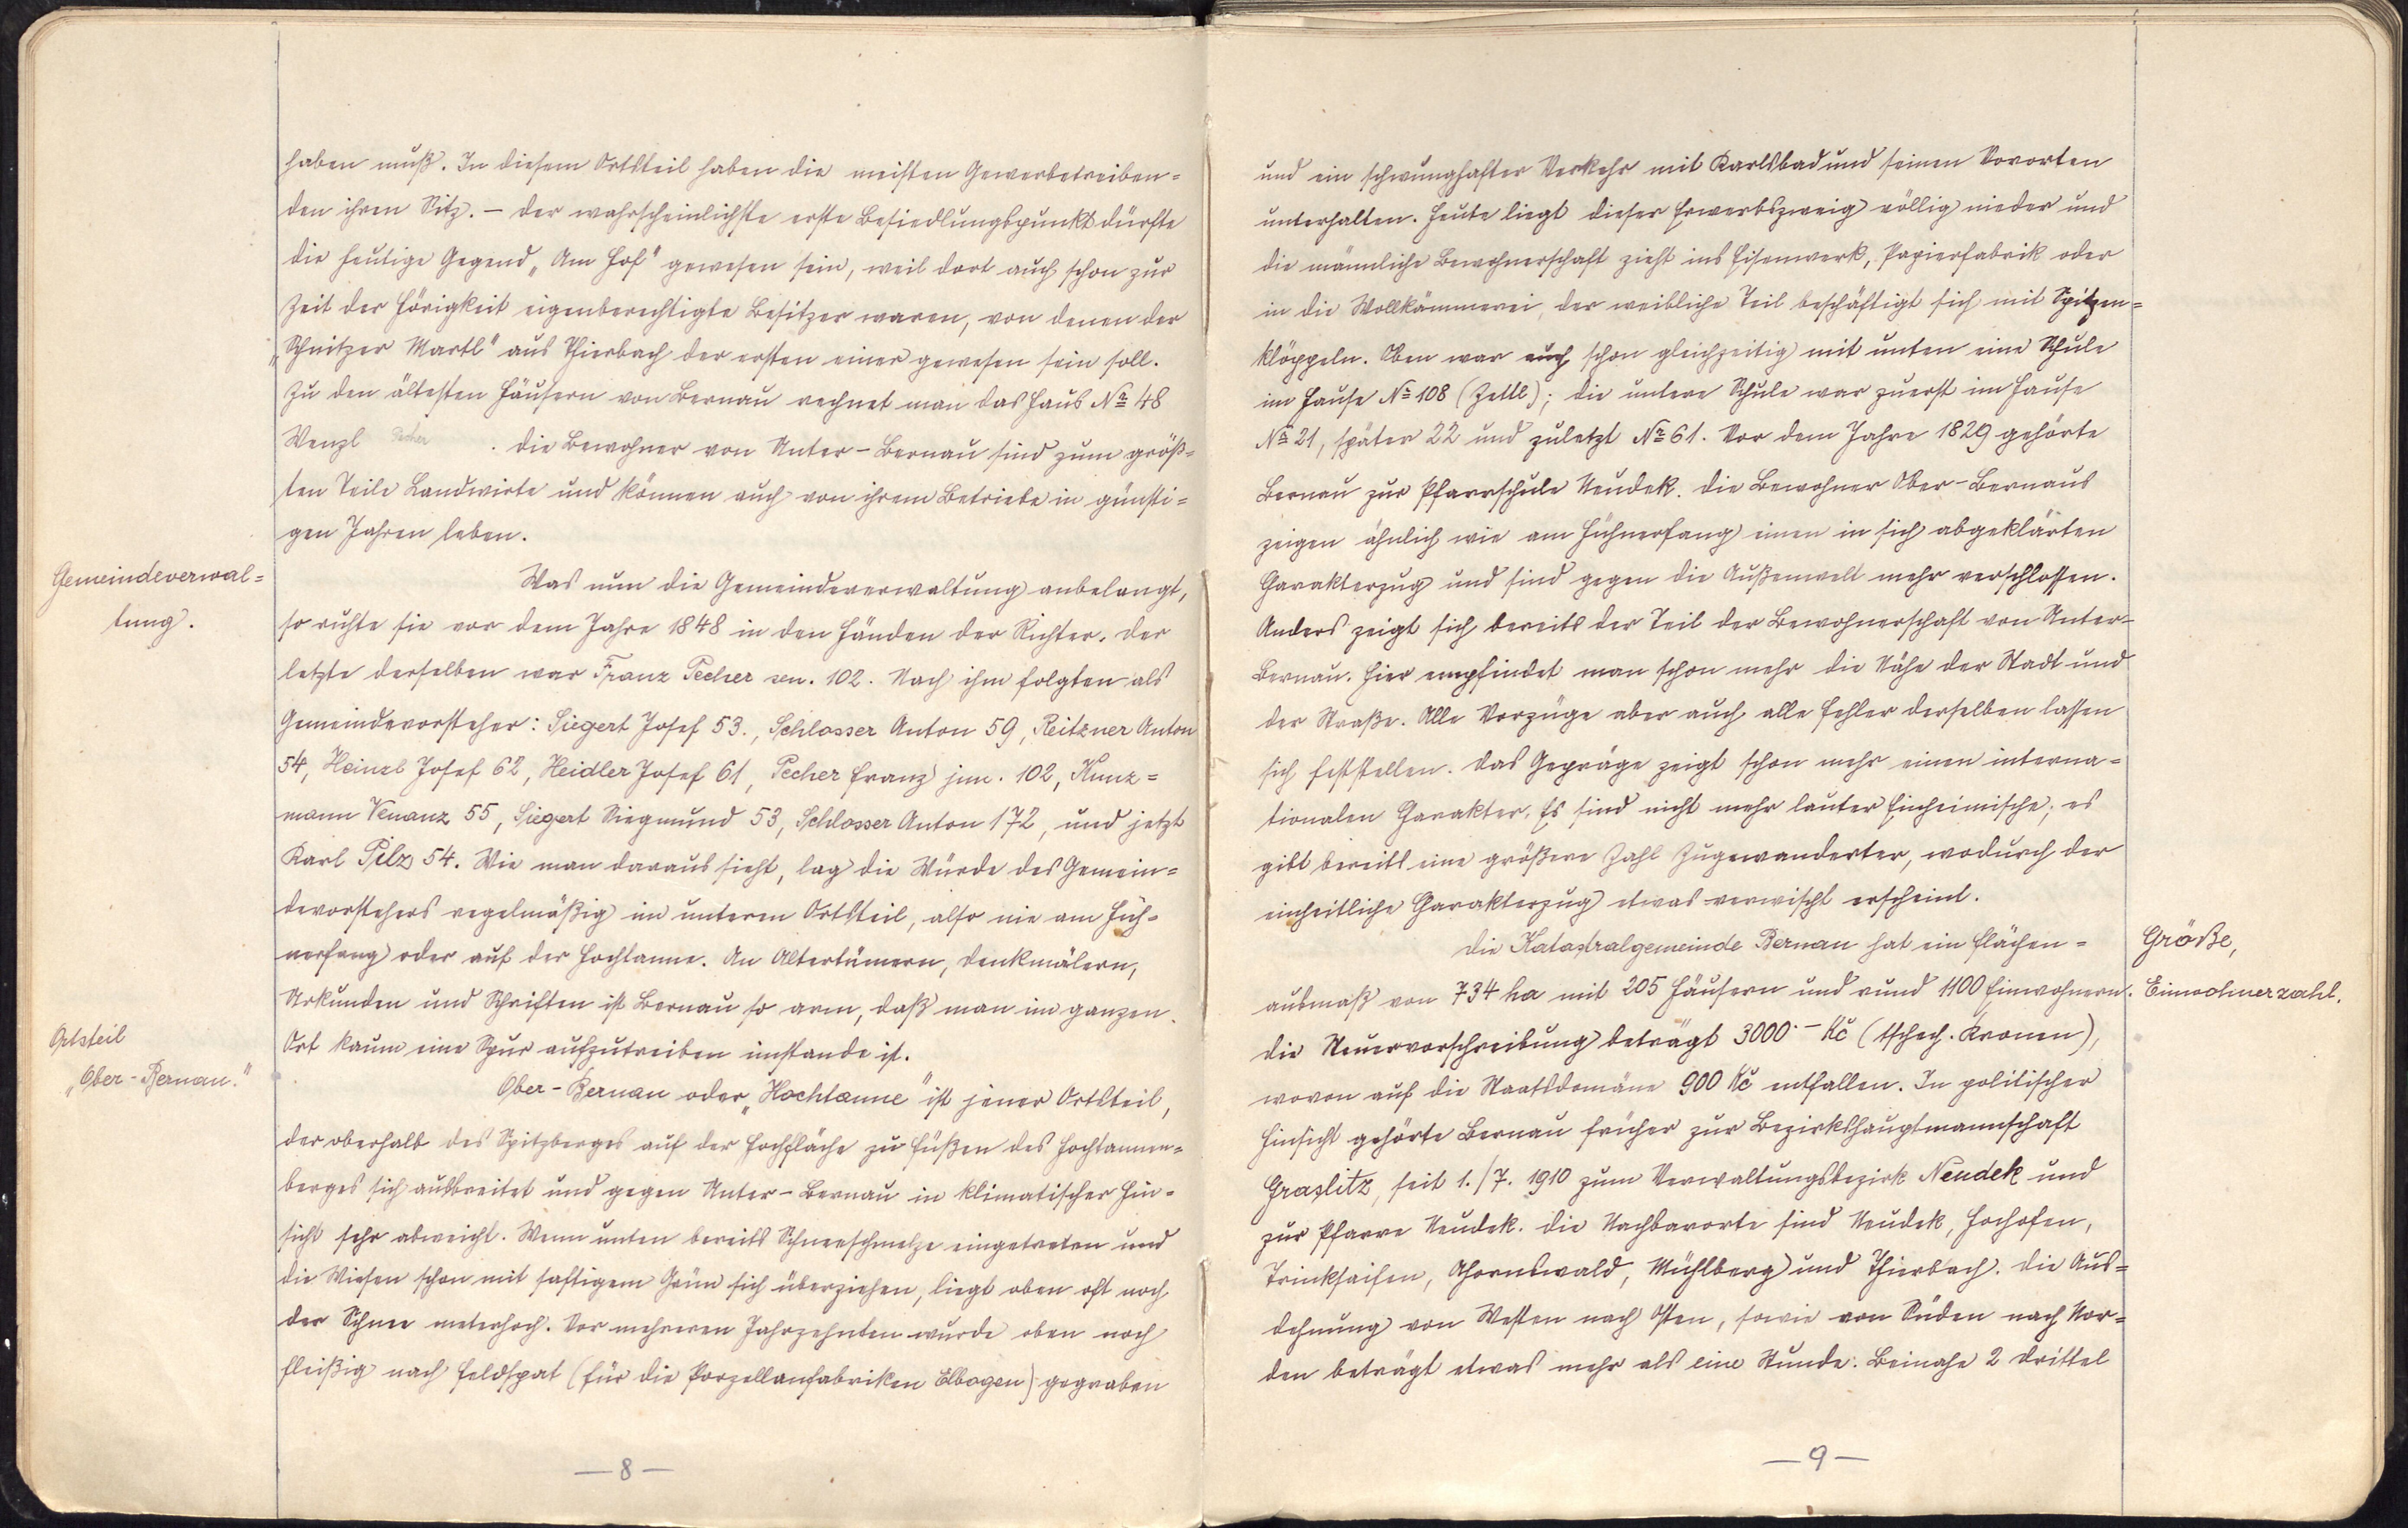 haben muß. In diesem Ortsteil haben die meisten Gewerbetreiben=
den ihren Sitz. – Der wahrscheinlichste erste Besiedlungspunkt dürfte
die heutige Gegend „Am Hof" gewesen sein, weil dort auch schon zur
Zeit der Hörigkeit eigenberechtigte Besitzer waren, von denen der
„Schnitzer Martl" aus Thierbach der ersten einer gewesen sein soll.
Zu den ältesten Häusern von Bernau rechnet man das Haus No 48
Wenzl Pecher . Die Bewohner von Unter-Bernau sind zum größ=
ten Teile Landwirte und können auch von ihrem Betriebe in günsti=
gen Jahren leben.
Gemeindeverwal=
tung.
Was nun die Gemeindeverwaltung anbelangt,
so ruhte sie vor dem Jahre 1848 in den Händen der Richter. Der
letzte derselben war Franz Pecher sen. 102. Nach ihm folgten als
Gemeindevorsteher: Siegert Josef 53., Schlosser Anton 59, Reitzner Anton
54, Heinzl Josef 62, Heidler Josef 61, Pecher Franz jun. 102, Kunz=
mann Venanz 55, Siegert Siegmund 53, Schlosser Anton 172, und jetzt
Karl Pilz 54. Wie man daraus sieht, lag die Würde des Gemein=
devorstehers regelmäßig im unteren Ortsteil, also nie am Hüh=
nerfang oder auf der Hochtanne. An Altertümern, Denkmälern,
Urkunden und Schriften ist Bernau so arm, daß man im ganzen
Ort kaum eine Spur aufzutreiben imstande ist.
Ortsteil
„Ober-Bernau."
Ober-Bernau oder „Hochtanne" ist jener Ortsteil,
der oberhalb des Spitzberges auf der Hochfläche zu Füßen des Hochtannen=
berges sich ausbreitet und gegen Unter-Bernau in klimatischer Hin=
sicht sehr abweicht. Wenn unten bereits Schneeschmelze eingetreten und
die Wiesen schon mit saftigem Grün sich überziehen, liegt oben oft noch
der Schnee meterhoch. Vor mehreren Jahrzehnten wurde oben noch
fleißig nach Feldspat (für die Porzellanfabriken Elbogen) gegraben
—8—
und ein schwunghafter Verkehr mit Karlsbad und seinen Vororten
unterhalten. Heute liegt dieser Erwerbszweig völlig nieder und
die männliche Bewohnerschaft zieht ins Eisenwerk, Papierfabrik oder
in die Wollkämmerei, der weibliche Teil beschäftigt sich mit Spitzen=
klöppeln. Oben war auch schon gleichzeitig mit unten eine Schule
im Hause No 108 (Zettl); die untere Schule war zuerst im Hause
No 21, später 22 und zuletzt No 61. Vor dem Jahre 1829 gehörte
Bernau zur Pfarrschule Neudek. Die Bewohner Ober-Bernaus
zeigen ähnlich wie am Hühnerfang einen in sich abgeklärten
Charakterzug und sind gegen die Außenwelt mehr verschlossen.
Anders zeigt sich bereits der Teil der Bewohnerschaft von Unter-
Bernau. Hier empfindet man schon mehr die Nähe der Stadt und
der Straße. Alle Vorzüge aber auch alle Fehler derselben lassen
sich feststellen. Das Gepräge zeigt schon mehr einen interna=
tionalen Charakter. Es sind nicht mehr lauter Einheimische; es
gibt bereits eine größere Zahl Zugewanderter, wodurch der
einheitliche Charakterzug etwas verwischt erscheint.
Größe,
Einwohnerzahl.
Die Katastralgemeinde Bernau hat ein Flächen=
ausmaß von 734 ha mit 205 Häusern und rund 1100 Einwohnern.
Die Steuervorschreibung beträgt 3000·– Kč (tschech. Kronen),
wovon auf die Staatsdomäne 900 Kč entfallen. In politischer
Hinsicht gehörte Bernau früher zur Bezirkshauptmannschaft
Graslitz, seit 1./7. 1910 zum Verwaltungsbezirk Neudek und
zur Pfarre Neudek. Die Nachbarorte sind Neudek, Hochofen,
Trinksaifen, Ahornswald, Mühlberg und Thierbach. Die Aus=
dehnung von Westen nach Osten, sowie von Süden nach Nor=
den beträgt etwas mehr als eine Stunde. Beinahe 2 Drittel
—9—